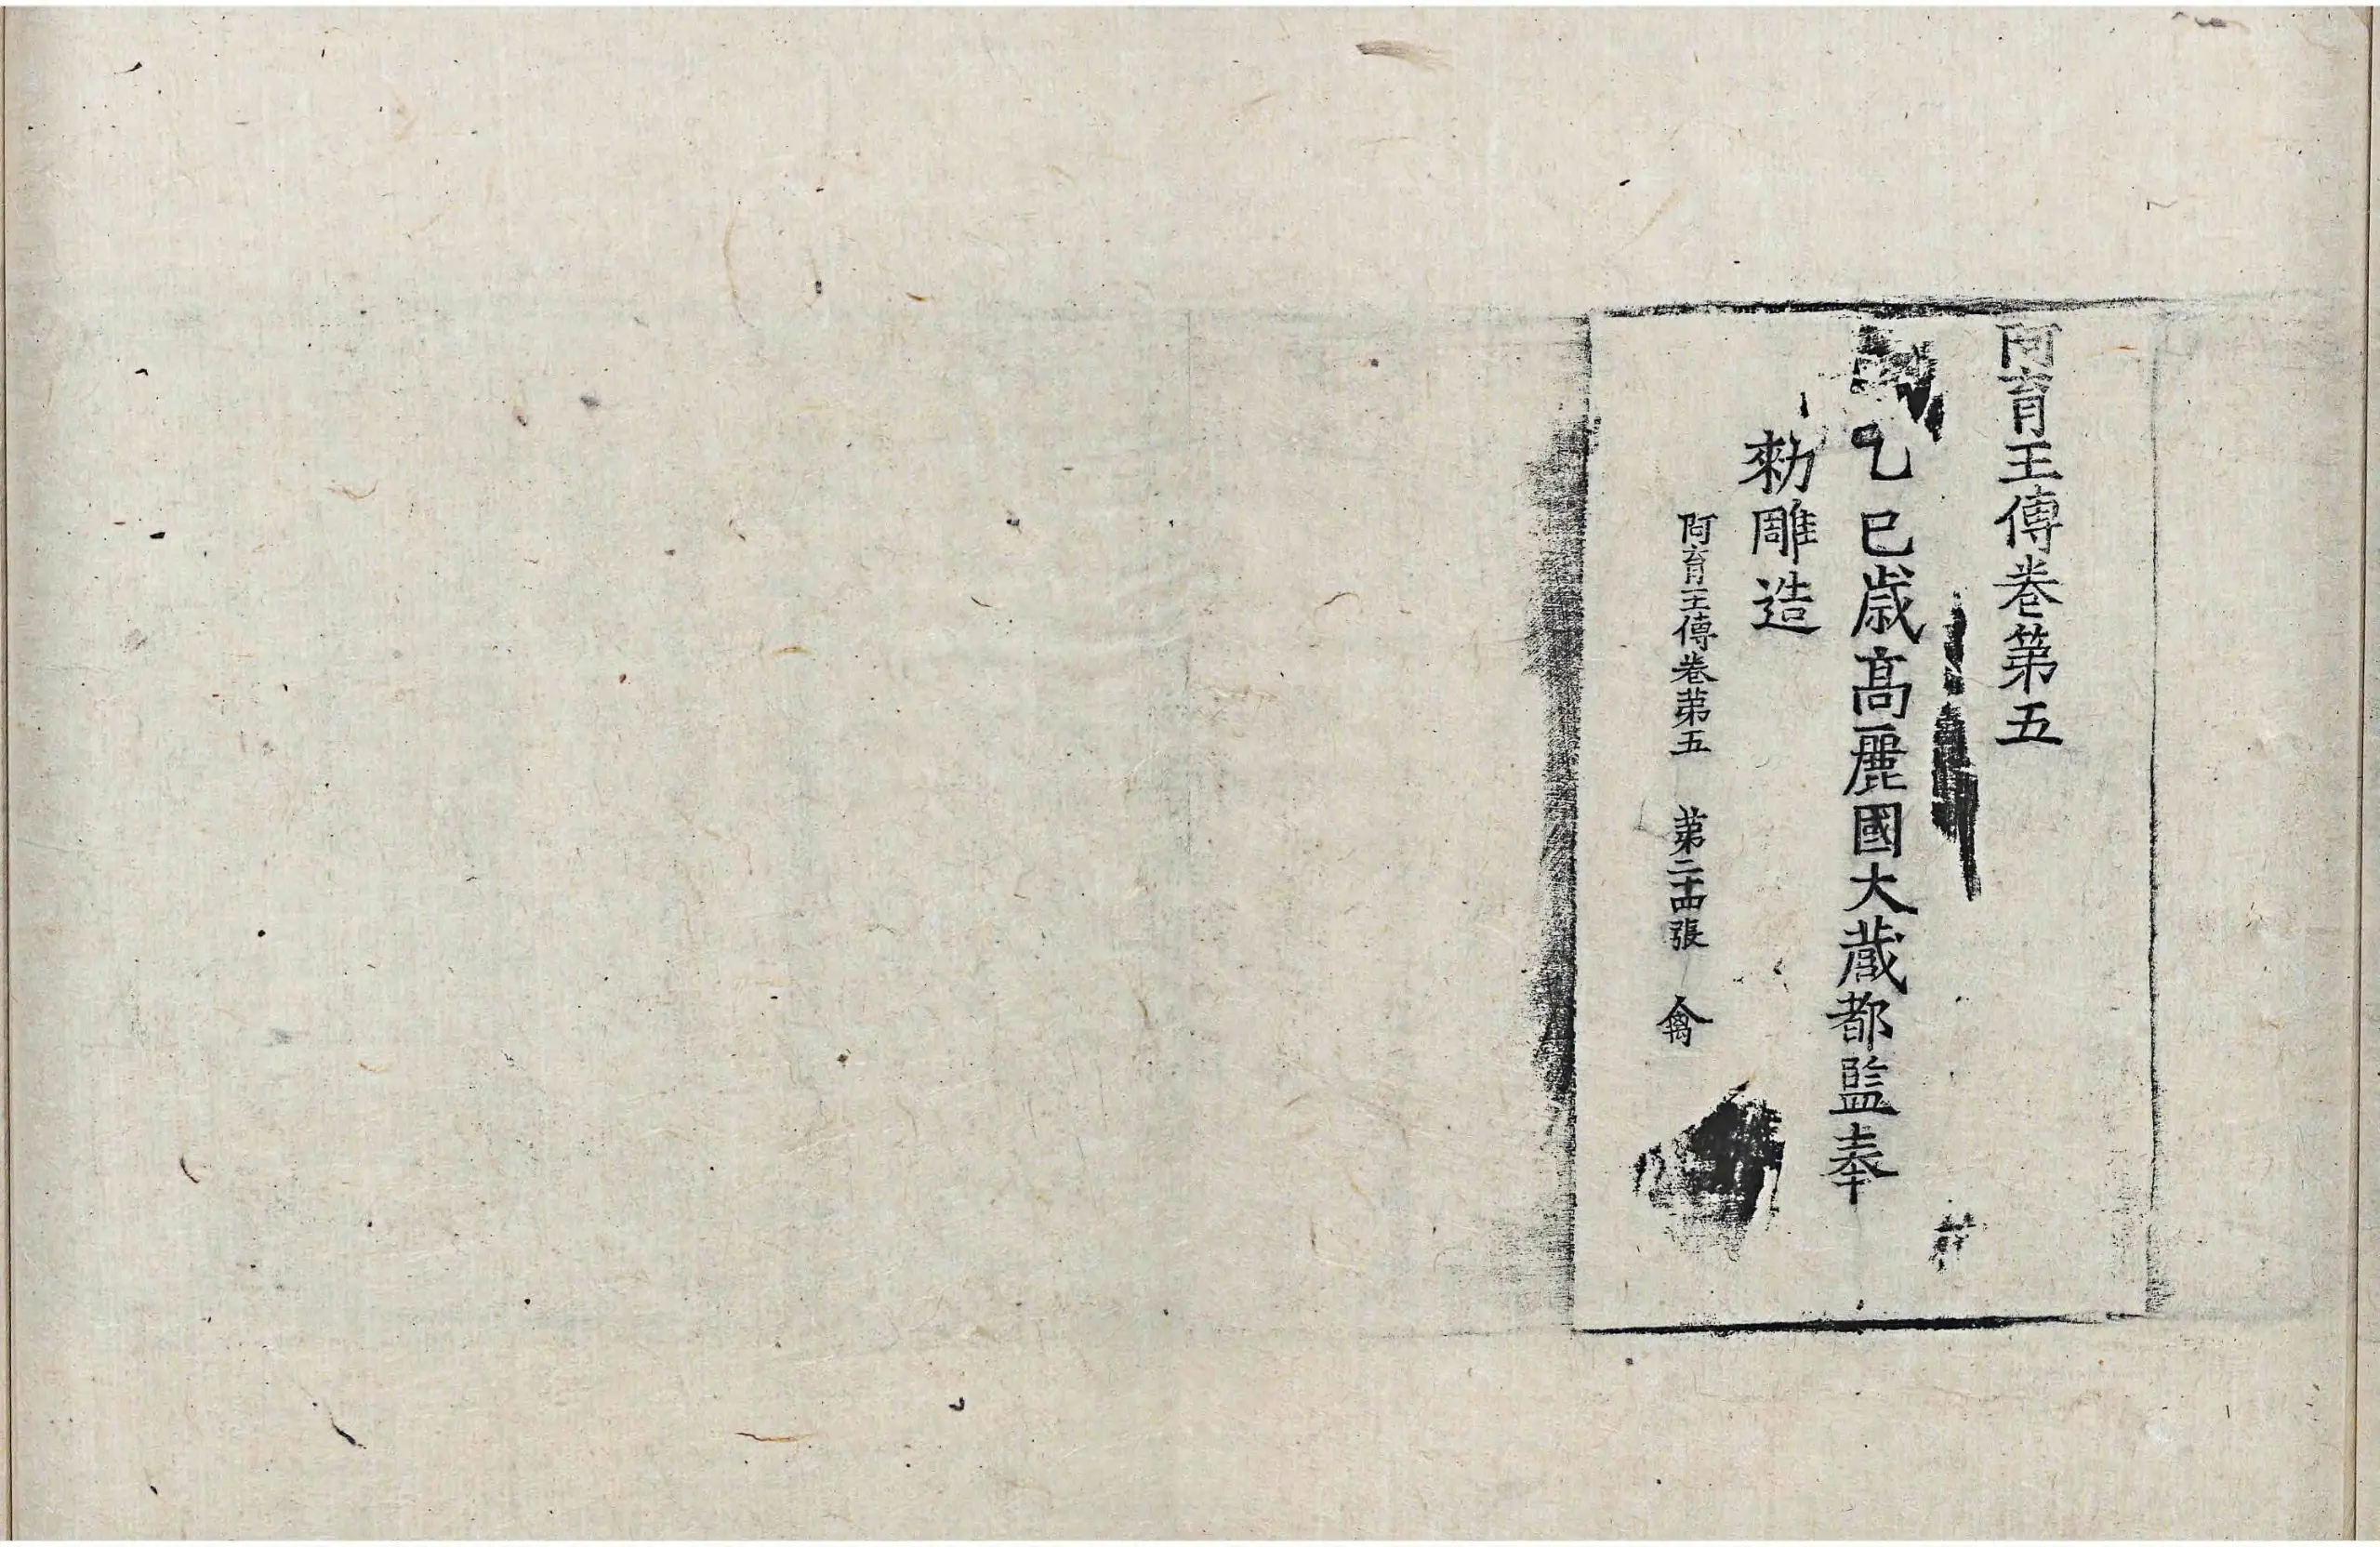 阿育王傳卷第五
乙巳歳髙麗國大藏都監奉
勑雕造
阿育王傳卷苐五　苐二十四張　禽